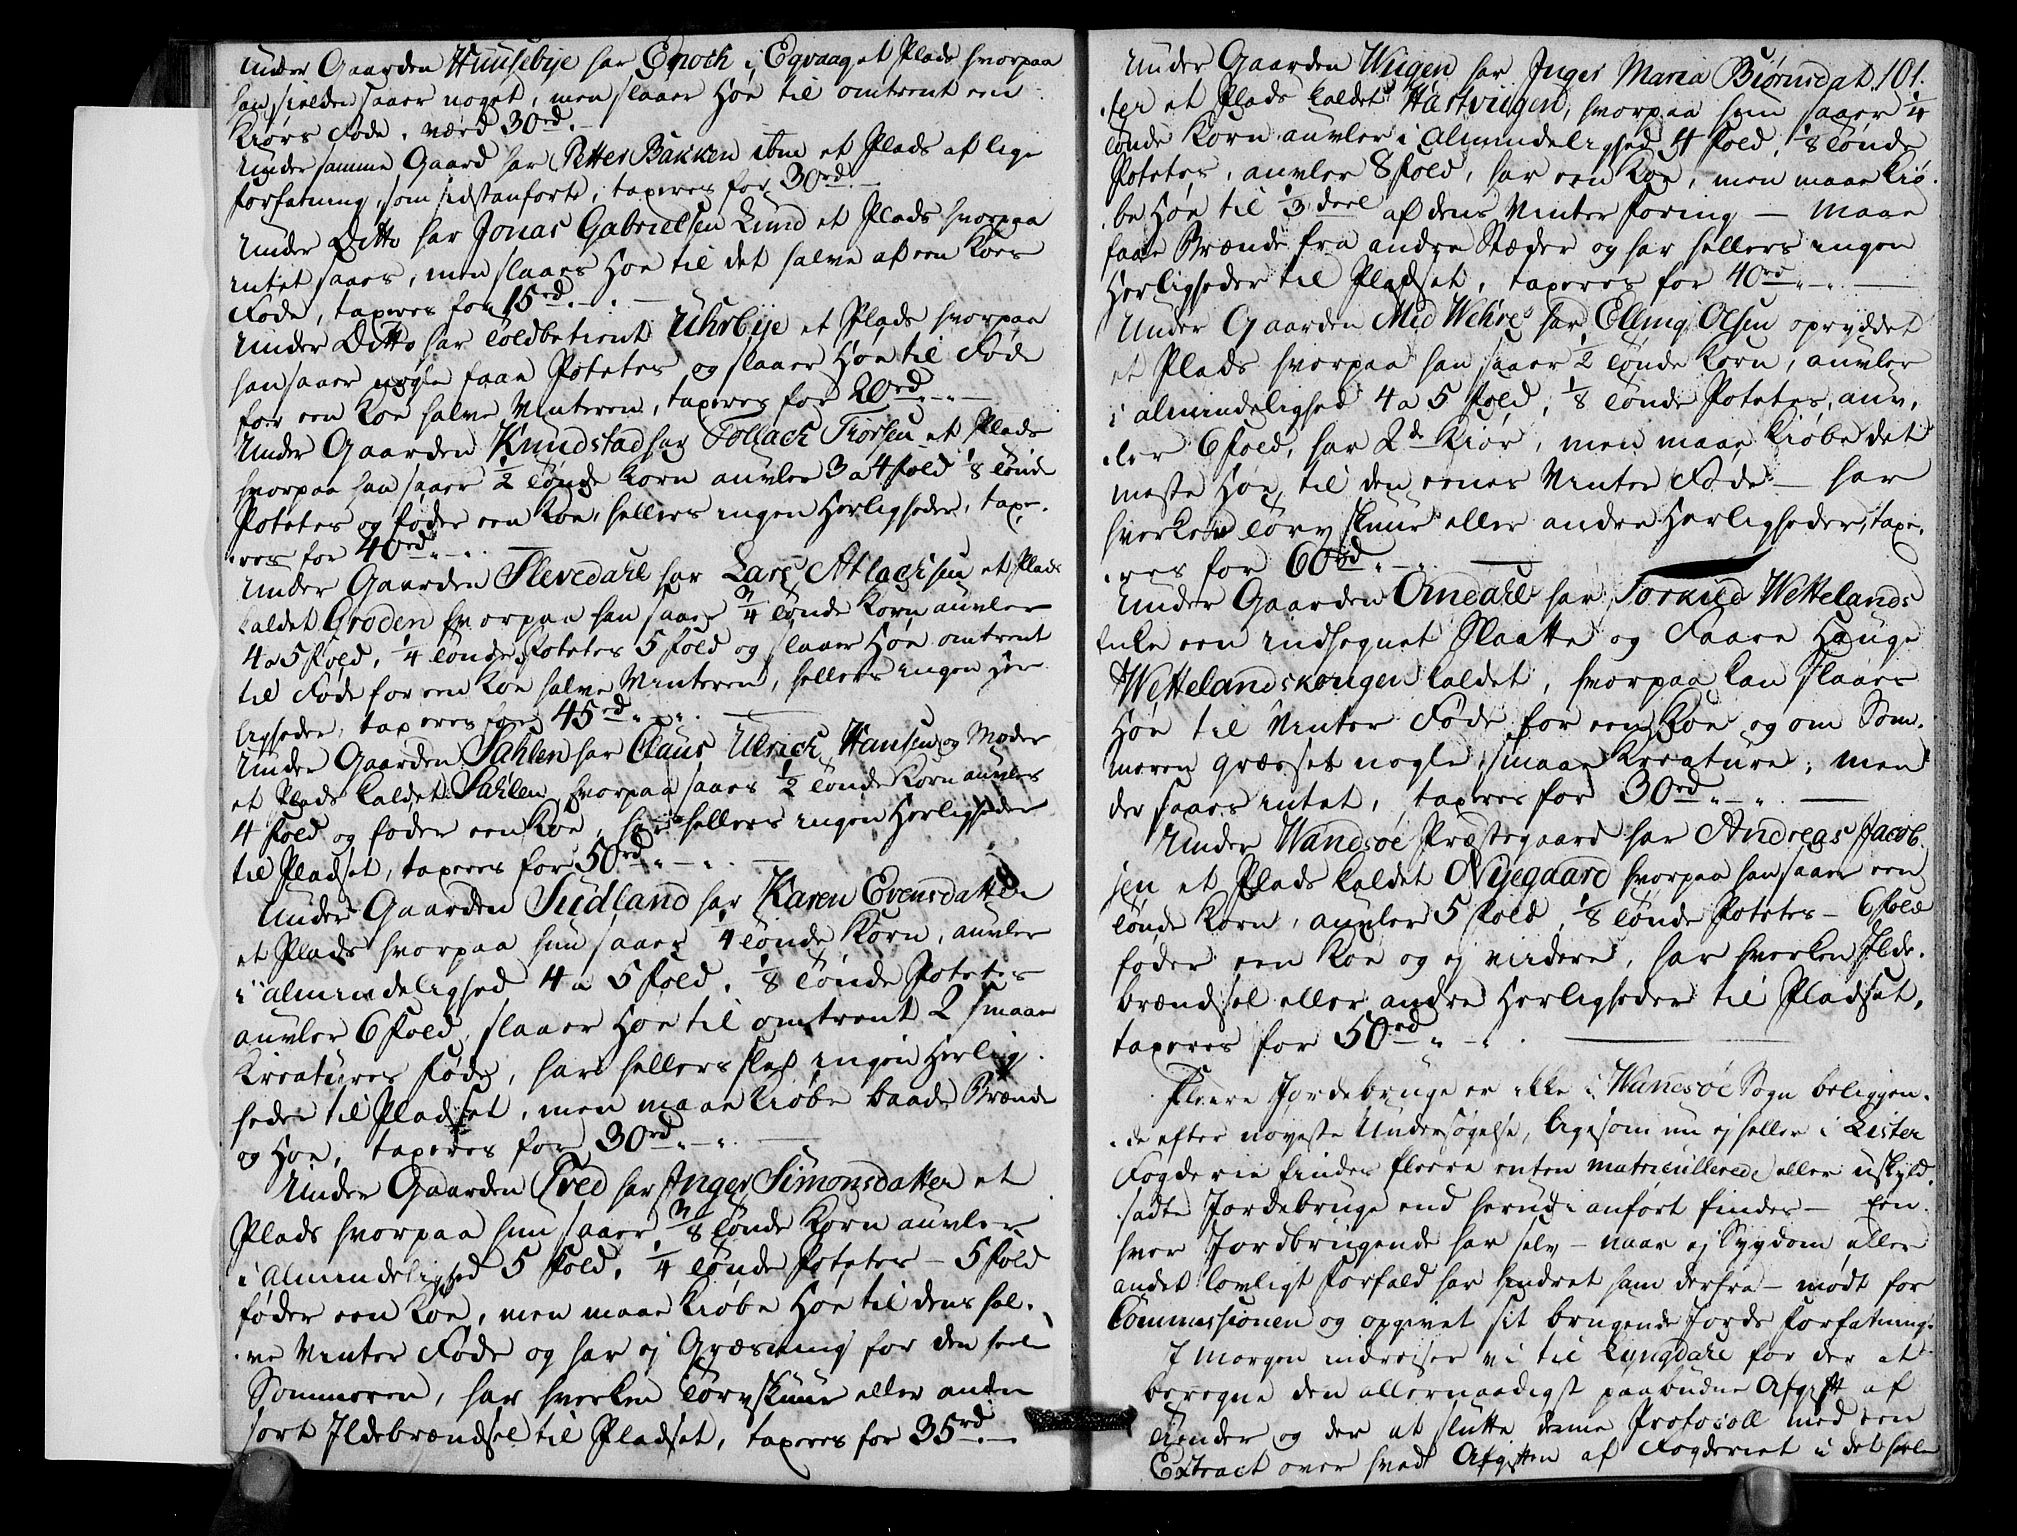 Under Gaarden Huusebye har Enoch i Eqvaag et Plads hvorpaa
han sielden saaer noget, men slaaer Høe til omtrent een
Kiørs Føde. værd 30rd. –
Under samme Gaard har Petter Bakken ibm et Plads af lige
forfatning, som sidstanførte, taxeres for 30rd. –
Under Ditto har Jonas Gabrielsen Lund et Plads hvorpaa
intet saaes, men slaaes Høe til det halve af een Koes
Føde, taxeres for 15rd. – . –
Under Ditto har Toldbetient Uhrbye et Plads hvorpaa
han saaer nogle faae Potetes og slaaer Høe til Føde
for een Koe halve Vinteren, taxeres for 20rd „ – „ –
Under Gaarden Knudstad har Tollach Thorsen et Plads
hvorpaa han saaer ½ Tønde Korn auvler 3 a 4 fold ⅛ Tønde
Potetes og føder een Koe, hellers ingen Herligheder, taxe-
-res for 40rd „ – „ . –
Under Gaarden Slevedahl har Lars Atlachsen et Plads
kaldet Groden hvorpaa han saaer ¾ Tønde Korn auvler
4 a 5 fold, ¼ Tønde Potetes 5 fold og slaaer Høe omtrent
til Føde for een Koe halve Vinteren, hellers ingen Her-
ligheder, taxeres for 45rd „ – „ . –
Under Gaarden Sahlen har Claus Ulrich Hansen og Moder
et Plads kaldet Sahlen, hvorpaa saaes ½ Tønde Korn auvles
4 fold og føder een Koe, har hellers ingen Herligheder
til Pladset, taxeres for 50rd „ – „ . –
Under Gaarden Sudland har Karen Evensdatter
et Plads hvorpaa hun saaer ¼ Tønde Korn, auvler
i almindelighed 4 a 5 fold, ⅛ Tønde Potetes
auvler 6 fold, slaaer Høe til omtrent 2 smaae
Kreatures Føde, har hellers slet ingen Herlig-
heder til Pladset, men maae kiøbe baade Brænde
og Høe, taxeres for 30rd „ – „ . –
Under Gaarden Tved har Inger Simonsdatter et
Plads hvorpaa hun saaer ⅜ Tønde Korn auvler
i Almindelighed 5 fold, ¼ Tønde Potetes – 5 fold
føder een Koe, men maae kiøbe Høe til dens hal-
-ve Vinter Føde og har ej Græsning for den heele
Sommeren, har hverken Tørvskuur eller anden
sort Ildebrændsel til Pladset, taxeres for 35rd. –
Under Gaarden Wiigen har Inger Maria Biørnsdat- 101.
-ter et Plads kaldet Hartviigen, hvorpaa hun saaer ¼
Tønde Korn auvler i Almindelighed 4 fold, ⅛ Tønde
Potetes, auvler 8 fold, har een Koe, men maae kiø-
-be Høe til ⅓ deel af dens Vinter foring – maae
faae Brænde fra andre Stæder og har hellers ingen
Herligheder til Pladset, taxeres for 40rd „ – „ . –
Under Gaarden Mid Wehre har Elling Olsen opryddet
et Plads hvorpaa han saaer ½ Tønde Korn, auvler
i almindelighed 4 a 5 fold, ⅛ Tønde Potetes, auv-
-ler 6 fold, har 2de Kiør, men maae kiøbe det
meste Høe til den eenes Vinter Føde – har
hverken Tørvskuur eller andre Herligheder, taxe-
-res for 60rd „ – „ . –
Under Gaarden Omdahl har Torkild Wettelands
Enke een indhegnet Slaatte og Faare Hauge
Wettelandskongen kaldet, hvorpaa kan slaaes
Høe til Vinter Føde for een Koe og om Som-
meren græsset nogle smaae Kreature, men
der saaes intet, taxeres for 30rd „ – „ . –
Under Wandsøe Præstegaard har Andreas Jacob-
sen et Plads kaldet Nyegaard hvorpaa han saaer een
Tønde Korn, auvler 5 fold, ⅛ Tønde Potetes – 6 fold
føder een Koe og ej videre, har hverken Ilde-
brændsel eller andre Herligheder til Pladset,
taxeres for 50rd „ – „ . –
Fleere Jordebruge er ikke i Wandsøe Sogn beliggen-
-de efter nøyeste Undersøgelse, ligesom nu ej heller i Lister
Fogderie findes fleere enten matriculerede eller uskyld-
satte Jordebruge end herudi anført findes – Een-
hver Jordbrugende har selv – naar ej Sygdom eller
andet lovligt Forfald har hindret ham derfra – mødt for
Commissionen og opgivet sit brugende Jords Forfatning.
I Morgen indreiser vi til Lyngdahl for der at
beregne den allernaadigst paabudne Afgift af
Tiender og der at slutte denne Protocoll med een
Extract over hvad Afgiften af Fogderiet i det heele